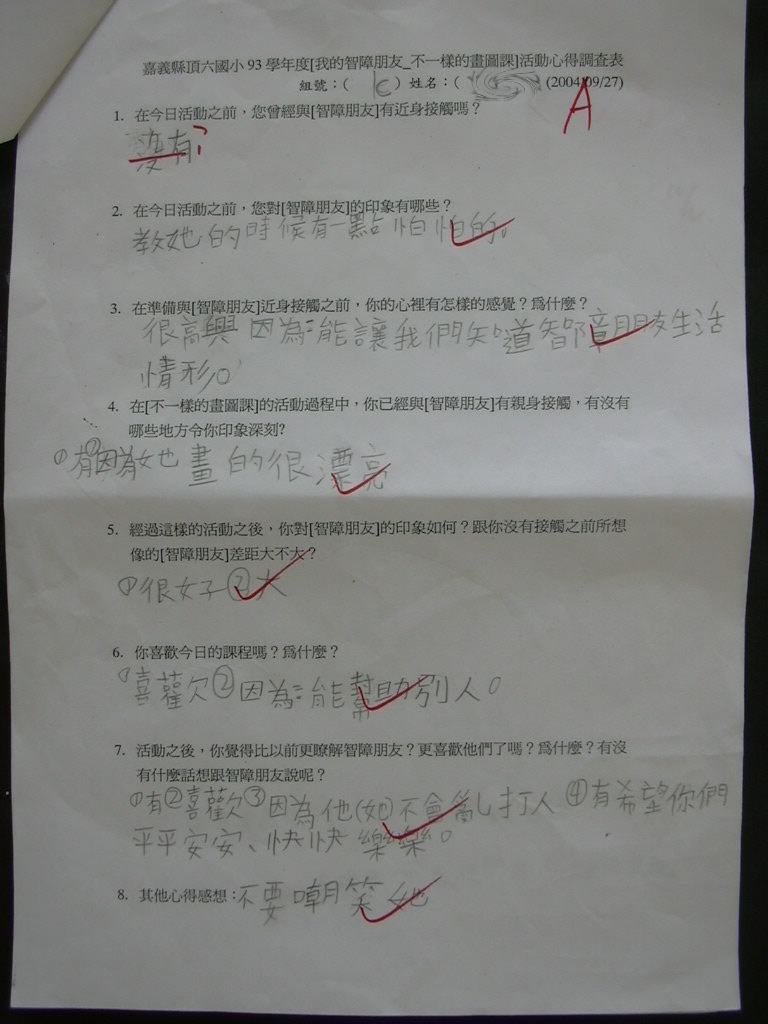 嘉義縣頂六國小93學年度[我的智障朋友_不一樣的畫圖課]活動心得調查表
組號：( ) 姓名：( (2004/09/27)
A
1. 在今日活動之前，您曾經與[智障朋友]有近身接觸嗎？
沒有?
2. 在今日活動之前，您對[智障朋友]的印象有哪些？
教她的時候有一點怕怕的。
3. 在準備與[智障朋友]近身接觸之前，你的心裡有怎樣的感覺？爲什麼？
很高興因為能讓我們知道智障朋友生活
情形。
4. 在[不一樣的畫圖課]的活動過程中，你已經與[智障朋友]有親身接觸，有沒有
哪些地方令你印象深刻?
①有②因為她畫的很漂亮
5. 經過這樣的活動之後，你對[智障朋友]的印象如何？跟你沒有接觸之前所想
像的[智障朋友]差距大不大？
①很好②大
6. 你喜歡今日的課程嗎？爲什麼？
①喜歡②因為能幫助別人。
7. 活動之後，你覺得比以前更瞭解智障朋友？更喜歡他們了嗎？爲什麼？有沒
有什麼話想跟智障朋友說呢？
①有②喜歡③因為他(她)不會亂打人④有希望你們
平平安安、快快樂樂。
8. 其他心得感想：不要嘲笑她